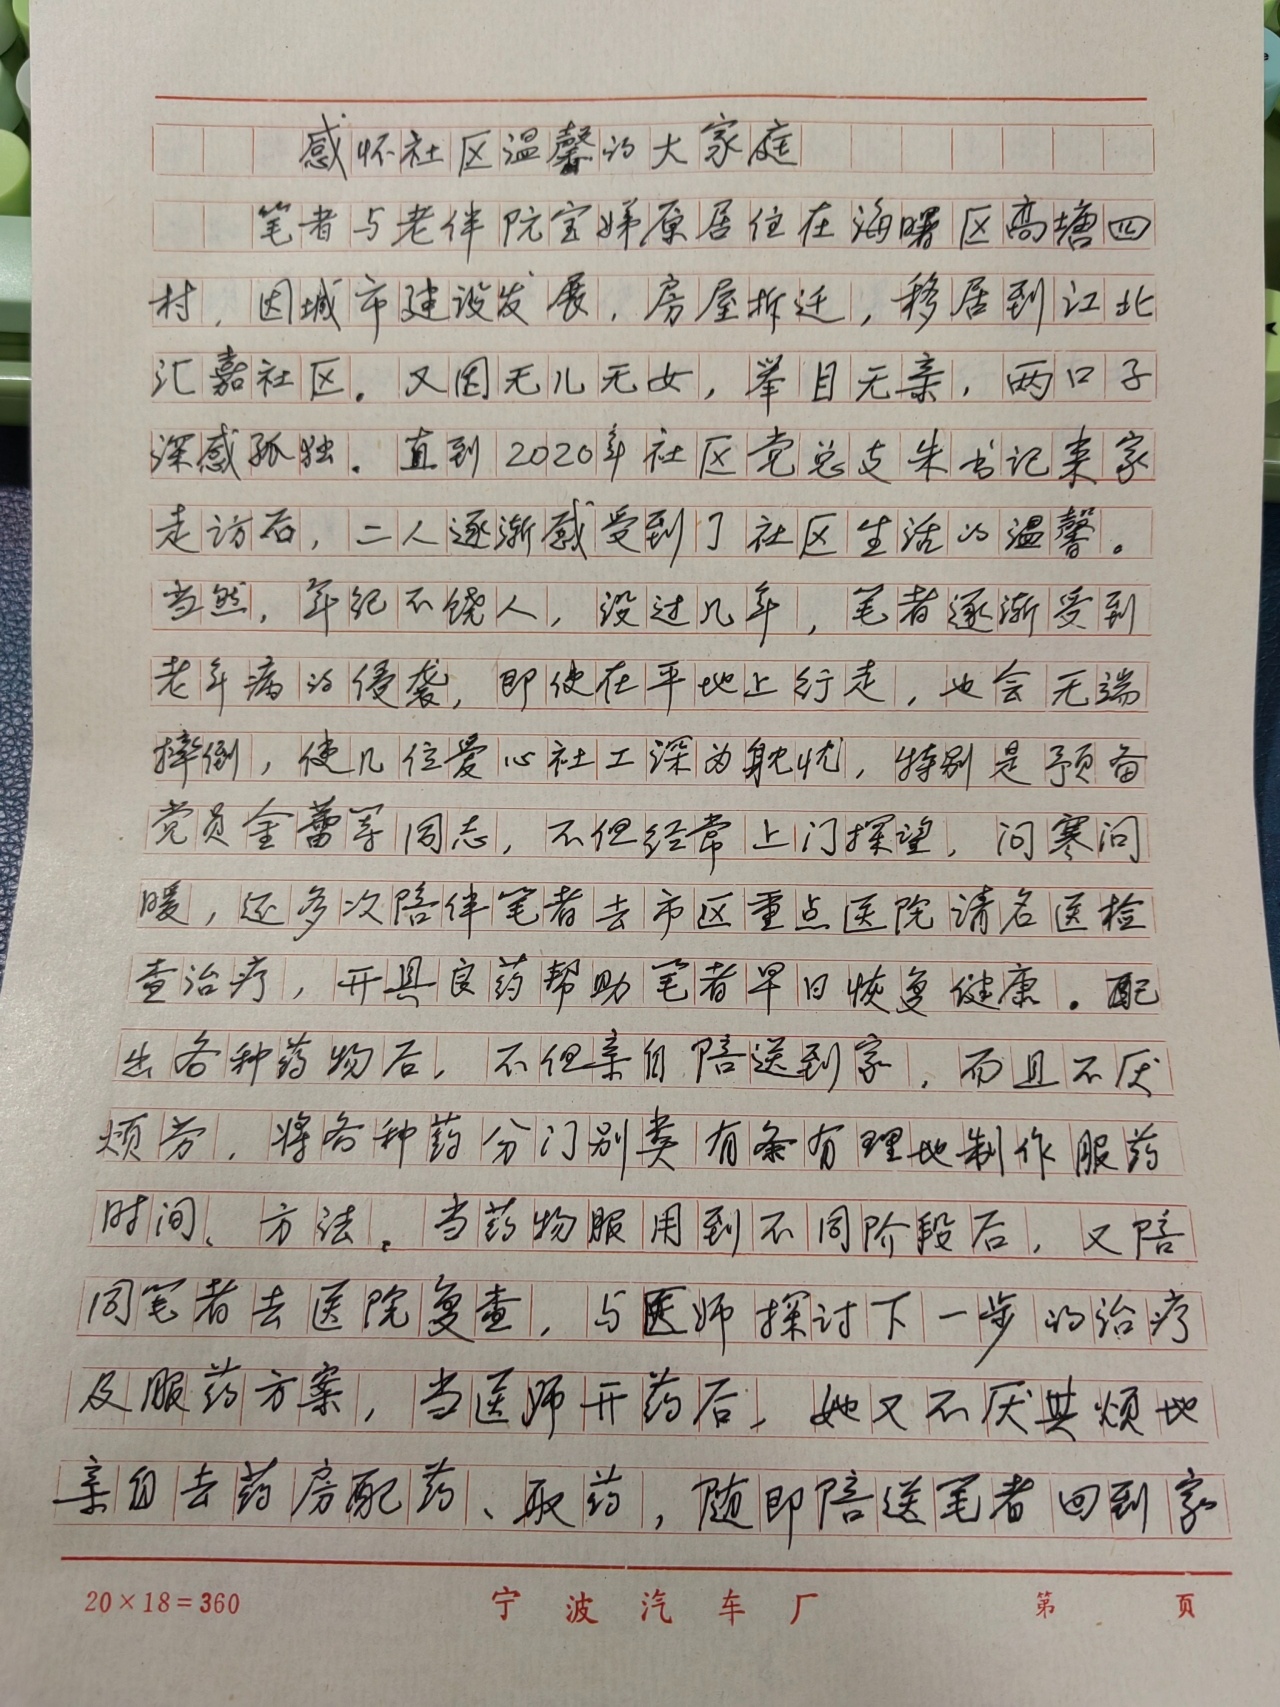 感怀社区温馨的大家庭
笔者与老伴阮宝娣原居住在海曙区高塘四
村，因城市建设发展，房屋拆迁，移居到江北
汇嘉社区。又因无儿无女，举目无亲，两口子
深感孤独。直到2020年社区党总支朱书记来家
走访后，二人逐渐感受到了社区生活的温馨。
当然，年纪不饶人，没过几年，笔者逐渐受到
老年病的侵袭，即使在平地上行走，也会无端
摔倒，使几位爱心社工深为躭忧，特别是预备
党员金蕾等同志，不但经常上门探望，问寒问
暖，还多次陪伴笔者去市区重点医院请名医检
查治疗，开具良药帮助笔者早日恢复健康。配
出各种药物后，不但亲自陪送到家，而且不厌
烦劳，将各种药分门别类有条有理地制作服药
时间、方法。当药物服用到不同阶段后，又陪
同笔者去医院复查，与医师探讨下一步的治疗
及服药方案，当医师开药后，她又不厌其烦地
亲自去药房配药、取药，随即陪送笔者回到家
20×18=360 宁波汽车厂 第 页